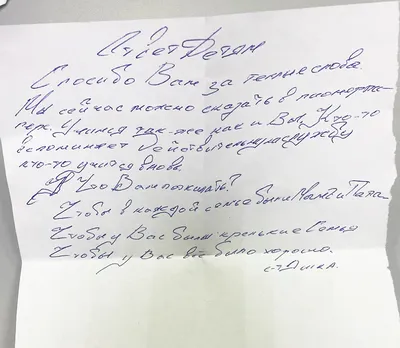 Привет Детям
Спосибо Вам за теплые слова.
Мы сейчас можно сказать в
парк. Учимся так-же как и Вы, Кто-то
вспоминает действительную службу
кто-то учится вновь.
Что Вам пожелать?
Чтобы в каждой семье были Мама и Папа
Чтобы у Вас были крепкие Семья
Чтобы у Вас всё было хорошо.